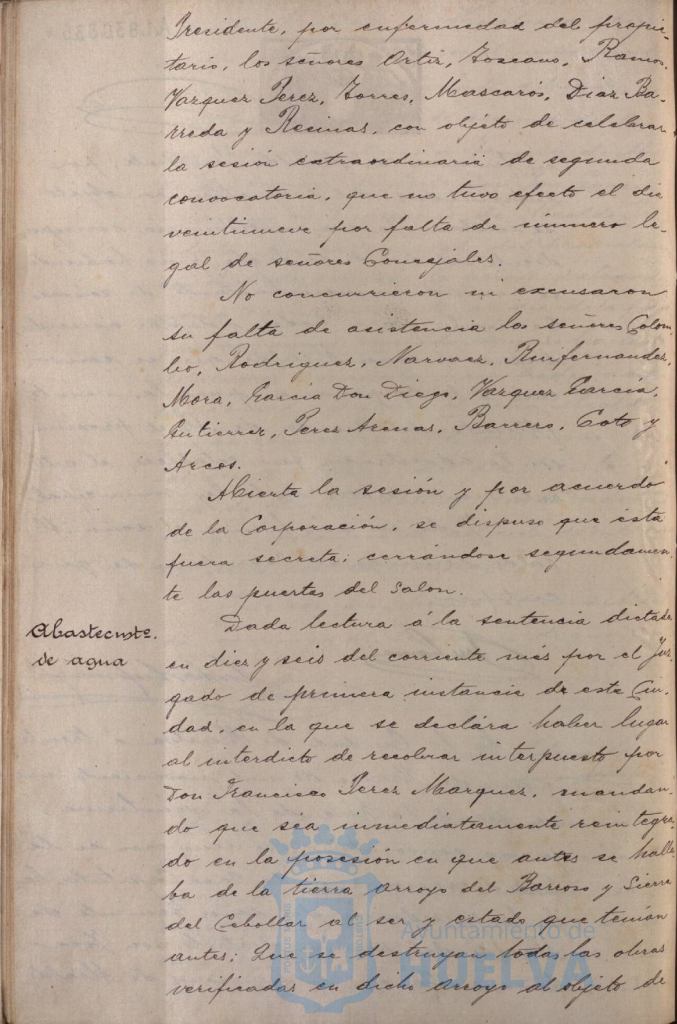 Presidente, por enfermedad del propie-
tario, los señores Ortiz, Toscano, Ramos,
Vazquez Perez, Torres, Mascarós, Diaz Ba-
rreda y Recinas, con objeto de celebrar
la sesión extraordinaria de segunda
convocatoria, que no tuvo efecto el dia
veintinueve por falta de número le-
gal de señores Concejales.
No concurrieron ni excusaron
su falta de asistencia los señores Colom-
bo, Rodriguez, Narvaez, Ruifernandez,
Mora, Garcia Don Diego, Vazquez García,
Gutierrez, Perez Arenas, Barrero, Coto y
Arcos.
Abierta la sesión y por acuerdo
de la Corporación, se dispuso que esta
fuera secreta; cerrándose segundamen-
te las puertas del Salon.
Abastecmto.
de agua
Dada lectura á la sentencia dictada
en diez y seis del corriente més por el Juz-
gado de primera instancia de esta Ciu-
dad, en la que se declára haber lugar
al interdicto de recobrar interpuesto por
Don Francisco Perez Marquez, mandan-
do que sea inmediatamente reintegra-
do en la posesión en que antes se halla-
ba de la tierra arroyo del Barroso y Sierra
del Cebollar al ser y estado que tenian
antes; Que se destruyan todas las obras
verificadas en dicho arroyo al objeto de
Ayuntamiento de
HUELVA